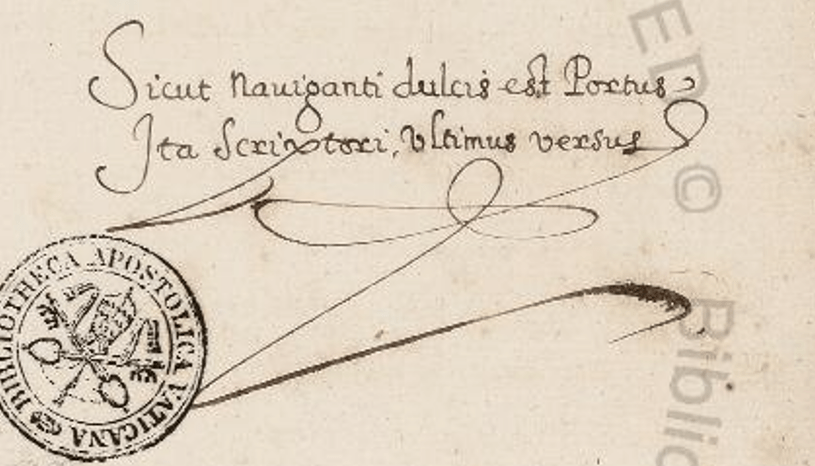 Sicut nauiganti dulcis est Portus
Ita scriptori, Vltimus versus
BIBLIOTHECA APOSTOLICA VATICANA
ED ©
Biblio